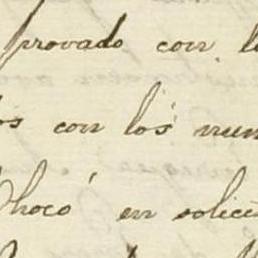 provado con l
os con los num
Chocó en solici